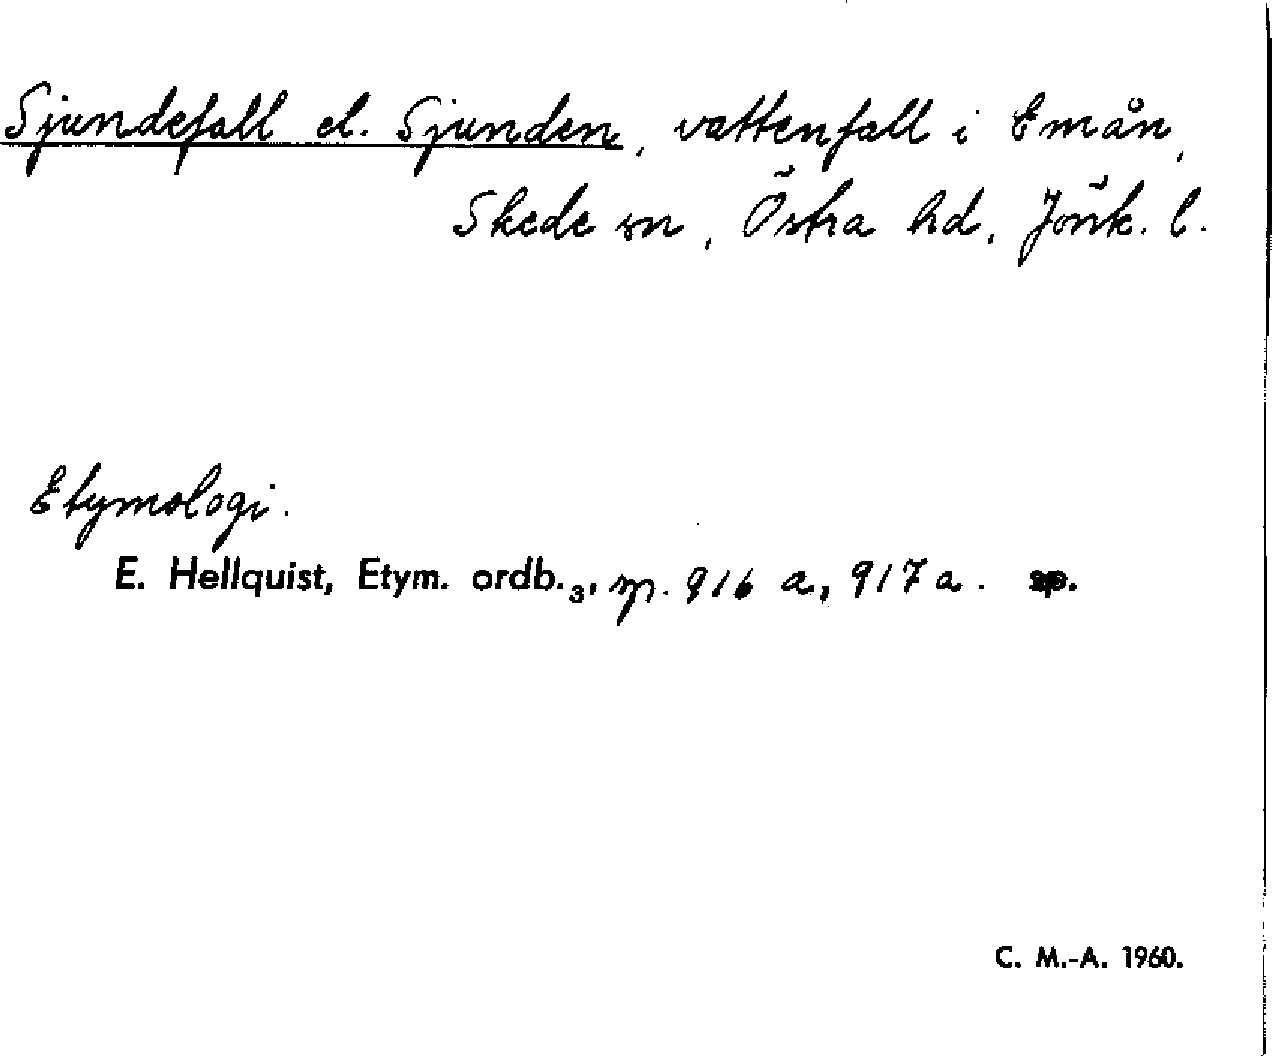 Sjundefall el. Sjunden, vattenfall i Emån,
Skede sn, Östra hd, Jönk. l.
Etymologi.
E. Hellquist, Etym. ordb.₃, sp. 916 a, 917 a. sp.
C. M.-A. 1960.